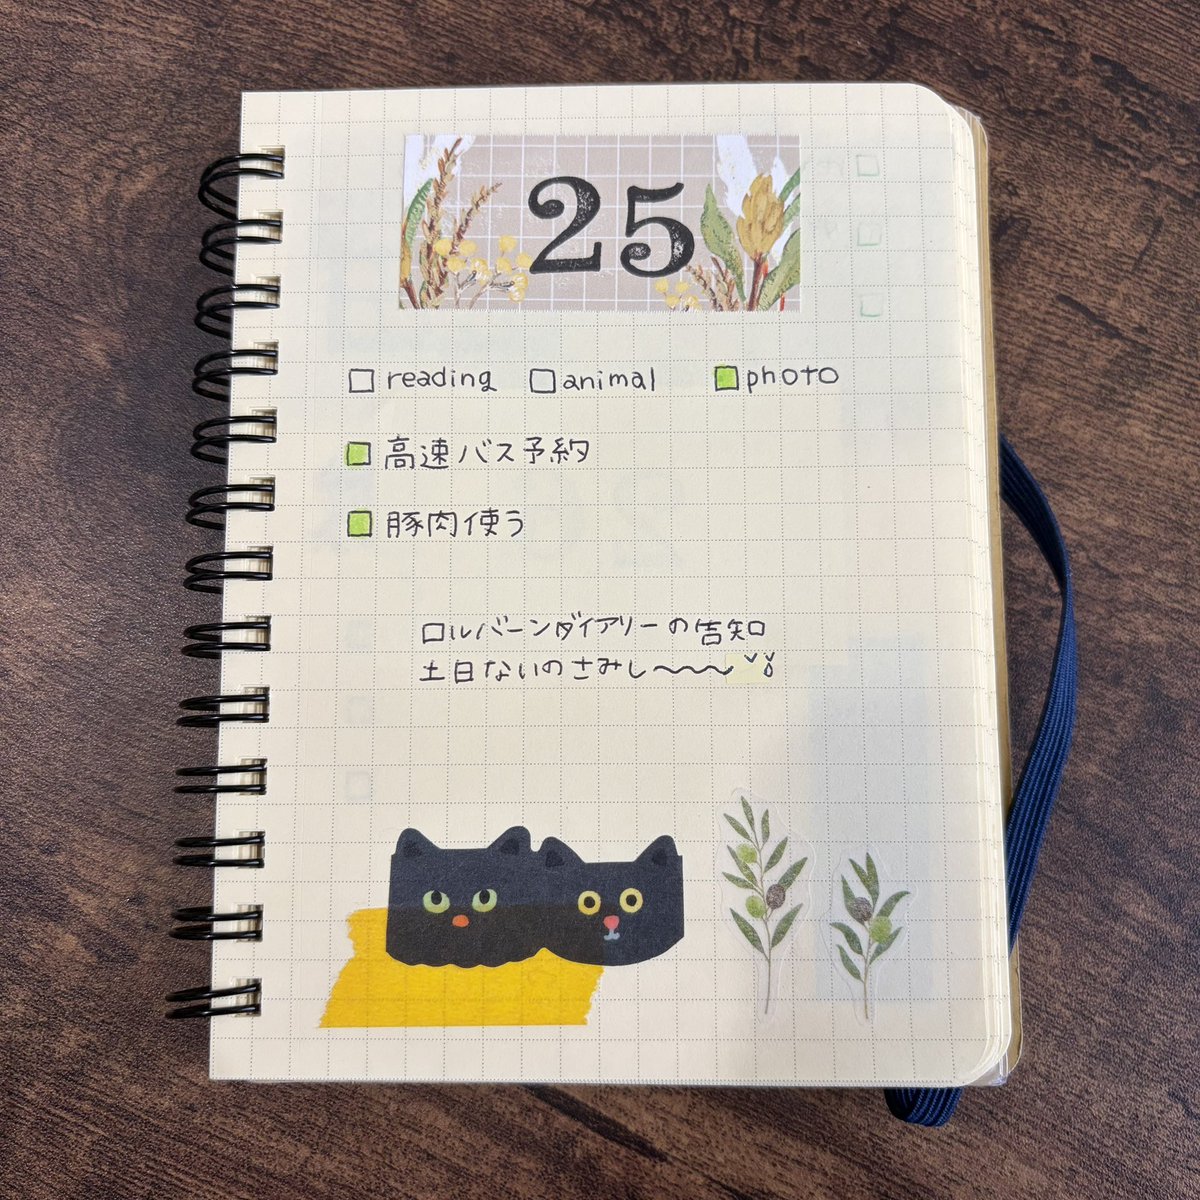 25
□ reading □ animal ■ photo
■ 高速バス予約
■ 豚肉使う
ロルバーンダイアリーの告知
土日ないのさみし〜〜〜